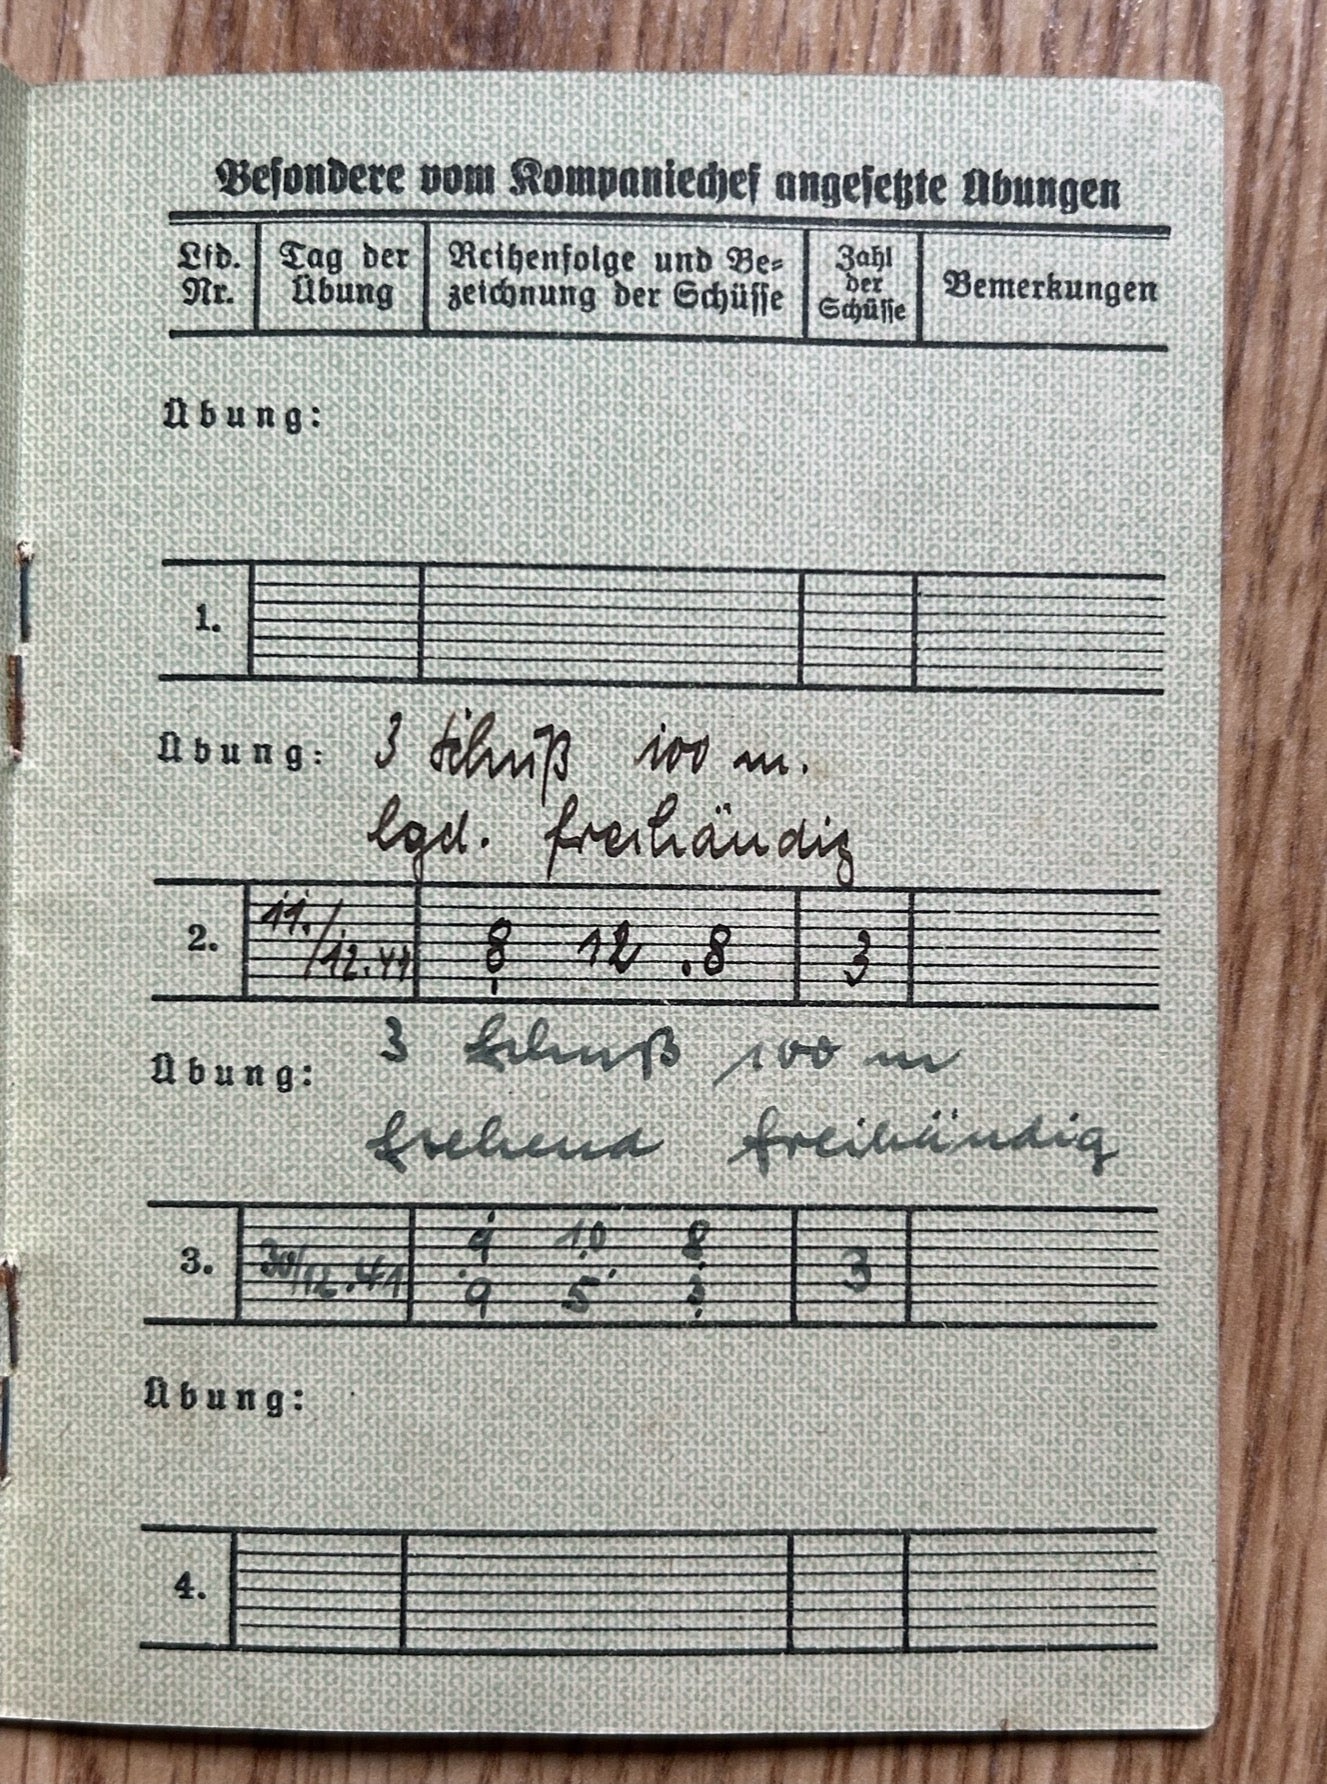 Besondere vom Kompaniechef angesetzte Übungen
Lfd. Nr.
Tag der Übung
Reihenfolge und Be=
zeichnung der Schüsse
Zahl der Schüsse
Bemerkungen
Übung:
1.
Übung: 3 Schuß 100 m.
lgd. freihändig
2. 11./12.41 8 12 8 3
Übung: 3 Schuß 100 m
stehend freihändig
3. 30/12.41 9 10 8 3
9 5 3
Übung:
4.